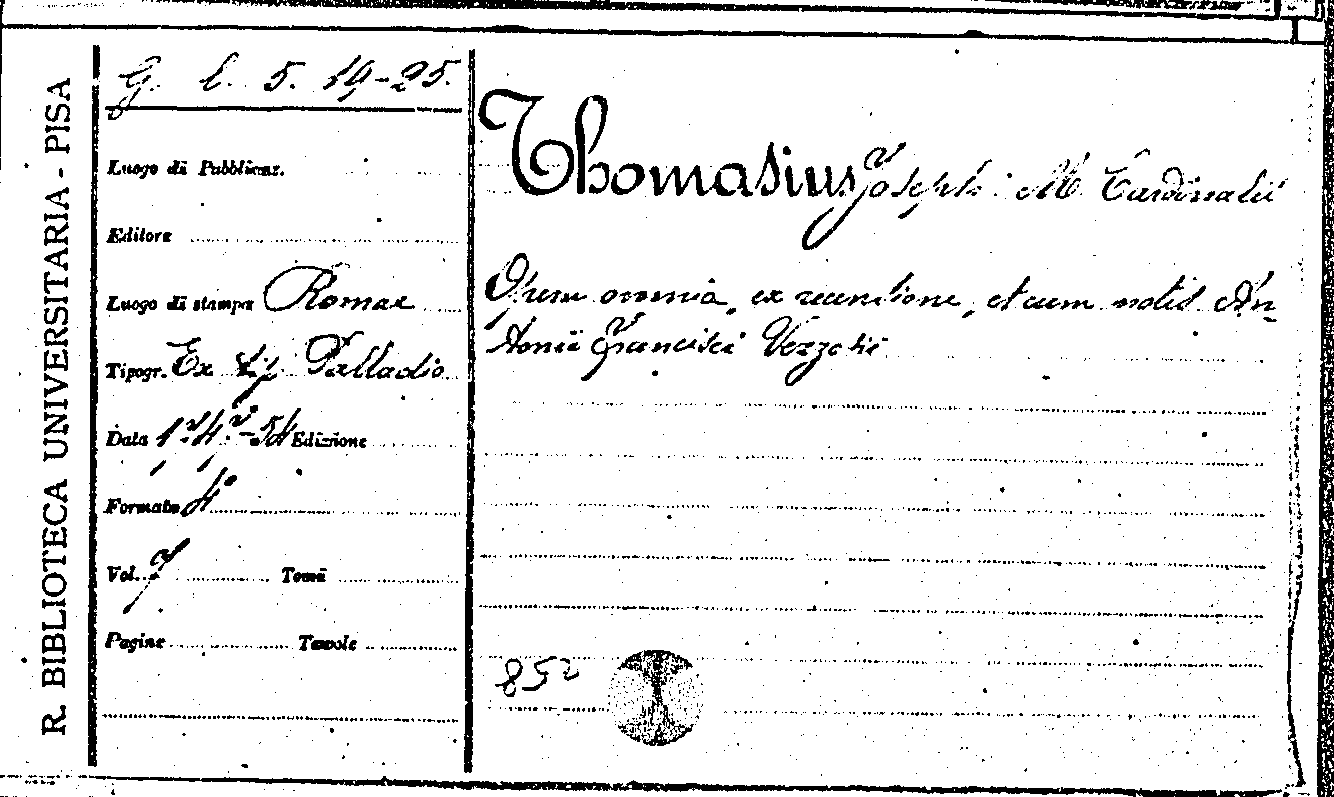 R. BIBLIOTECA UNIVERSITARIA - PISA
G. l. 5. 19-25.
Luogo di Pubblicaz.
Editore
Luogo di stampa Romae
Tipogr. Ex typ Palladio
Data 1747-54 Edizione
Formato 4°
Vol. 7 Tomi
Pagine Tavole
Thomasius Joseph M. Cardinalis
Opera omnia, ex recensione, et cum notis An-
tonii Francisci Vezzosii
852